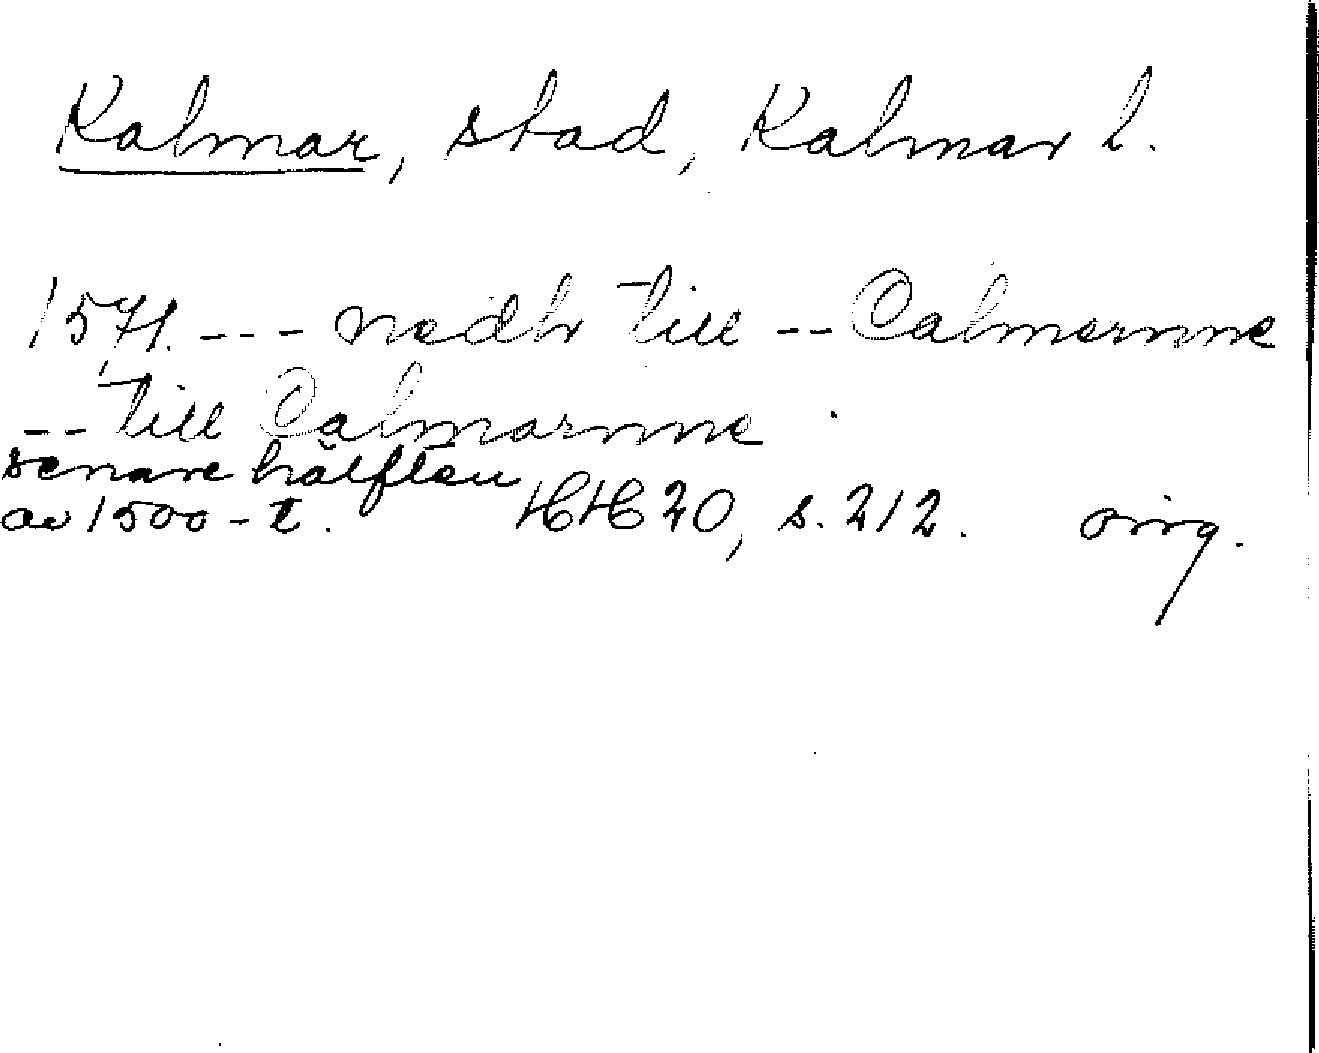 Kalmar, stad, Kalmar l.
1571. --- nedhr till -- Calmernne
-- till Calmarnne
senare hälften
av 1500-t. HH 20, s. 212. orig.